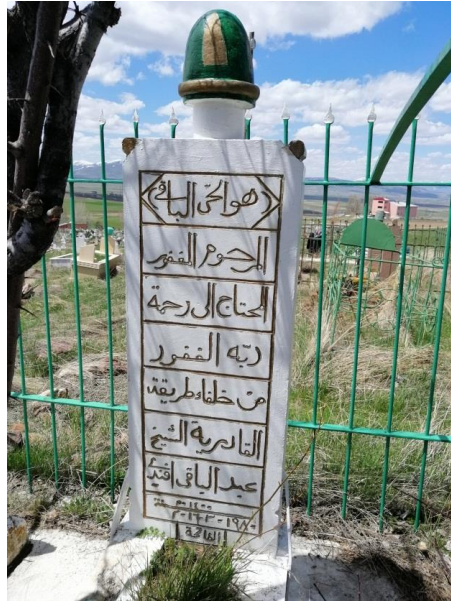 هو الحى الباقى
المرحوم المغفور
المحتاج الى رحمة
ربه الغفور
من خلفاء طريقة
القادرية الشيخ
عبد الباقى افندى
الفاتحة